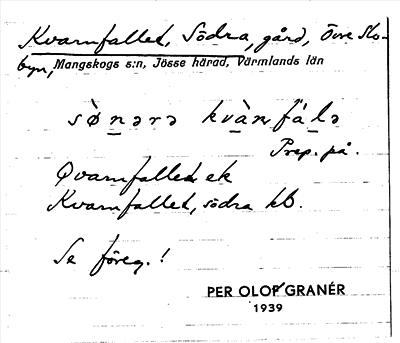 Kvarnfallet, Södra, gård, Övre Sko-
byn, Mangskogs s:n, Jösse härad, Värmlands län
sø̀nərə kvànfálə
Prep. på.
Qvarnfallet ek
Kvarnfallet, södra kb.
Se föreg.!
PER OLOF GRANÉR
1939